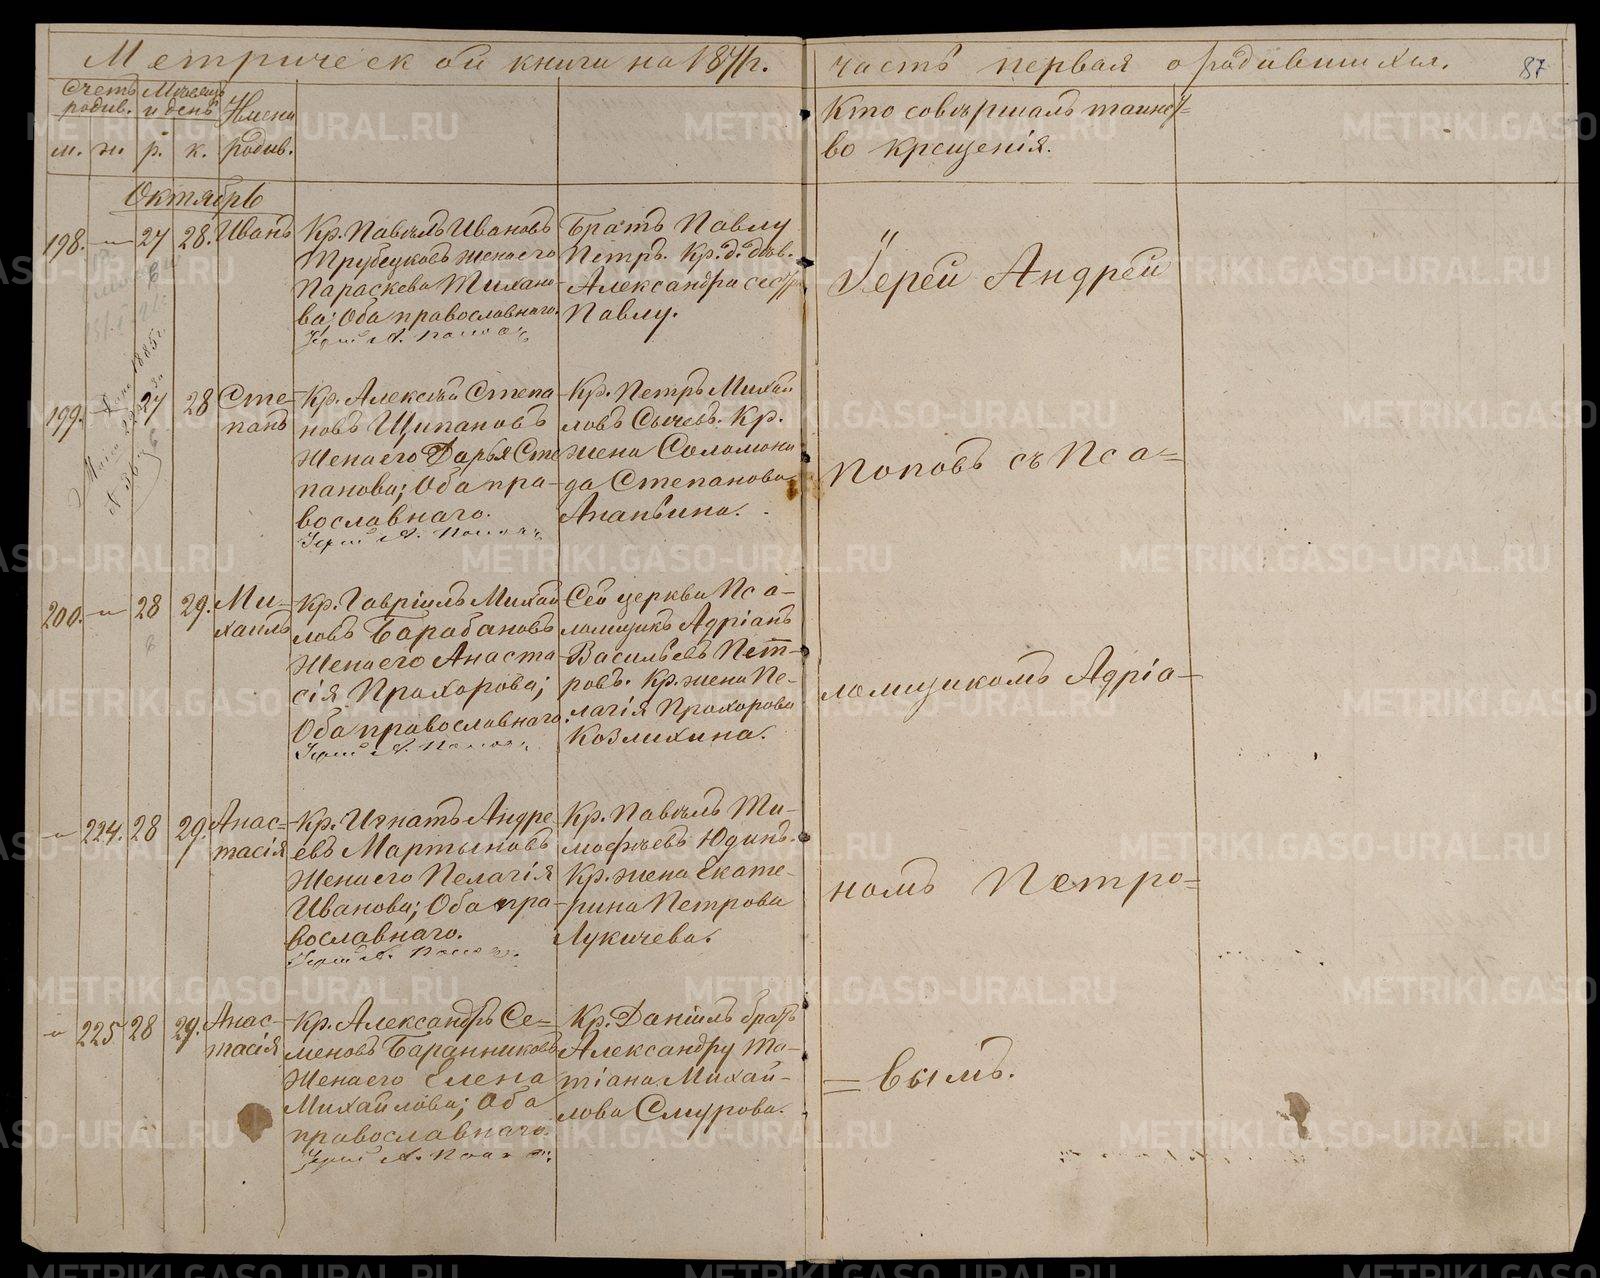 Метрической книги на 1871 г. часть первая о родившихся. 87
Счетъ родив.
м. ж.
Мѣсяцъ и день
р. к.
Имена родив.
Кто совершалъ таинст-
во крещенія.
Октябрь
198. — 27 28. Иванъ
Кр. Павелъ Ивановъ
Трубецковъ жена его
Параскева Тихано-
ва; Оба православнаго.
Іерей А. Поповъ
Братъ Павлу
Петръ. Кр. д. дѣв.
Александра сестра
Павлу.
199. — 27 28 Сте-
панъ
1885 г.
Кр. Алексѣй Степа-
новъ Щипановъ
Жена его Дарья Сте-
панова; Оба пра-
вославнаго.
Іерей А. Поповъ
Кр. Петръ Михай
ловъ Сычевъ. Кр.
жена Соломони
да Степанова
Ананьина.
200. — 28 29. Ми-
хаилъ
Кр. Гавріилъ Михаи
ловъ Барабановъ
Жена его Анаста-
сія Прохорова;
Оба православнаго.
Іерей А. Поповъ
Сей церкви Пса-
ломщикъ Адріанъ
Васильевъ Пет-
ровъ. Кр. жена Пе-
лагія Прохорова
Козлихина.
— 224. 28 29. Анас-
тасія
Кр. Игнатъ Андре
евъ Мартыновъ
Жена его Пелагія
Иванова; Оба пра-
вославнаго.
Іерей А. Поповъ
Кр. Павелъ Ти-
мофѣевъ Юдинъ.
Кр. жена Екате-
рина Петрова
Лукичева.
— 225 28 29. Анас-
тасія
Кр. Александръ Се-
меновъ Баранниковъ
Жена его Елена
Михайлова; Оба
православнаго.
Іерей А. Поповъ
Кр. Даніилъ братъ
Александру Та-
тіана Михай-
лова Смурова.
Іерей Андрей
Поповъ съ Пса-
ломщикомъ Адріа-
номъ Петро-
=вымъ.